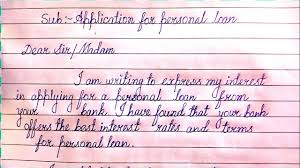 Sub:- Application for personal loan
Dear Sir/Madam
I am writing to express my interest
in applying for a personal loan from
your bank. I have found that your bank
offers the best interest rates and terms
for personal loan.